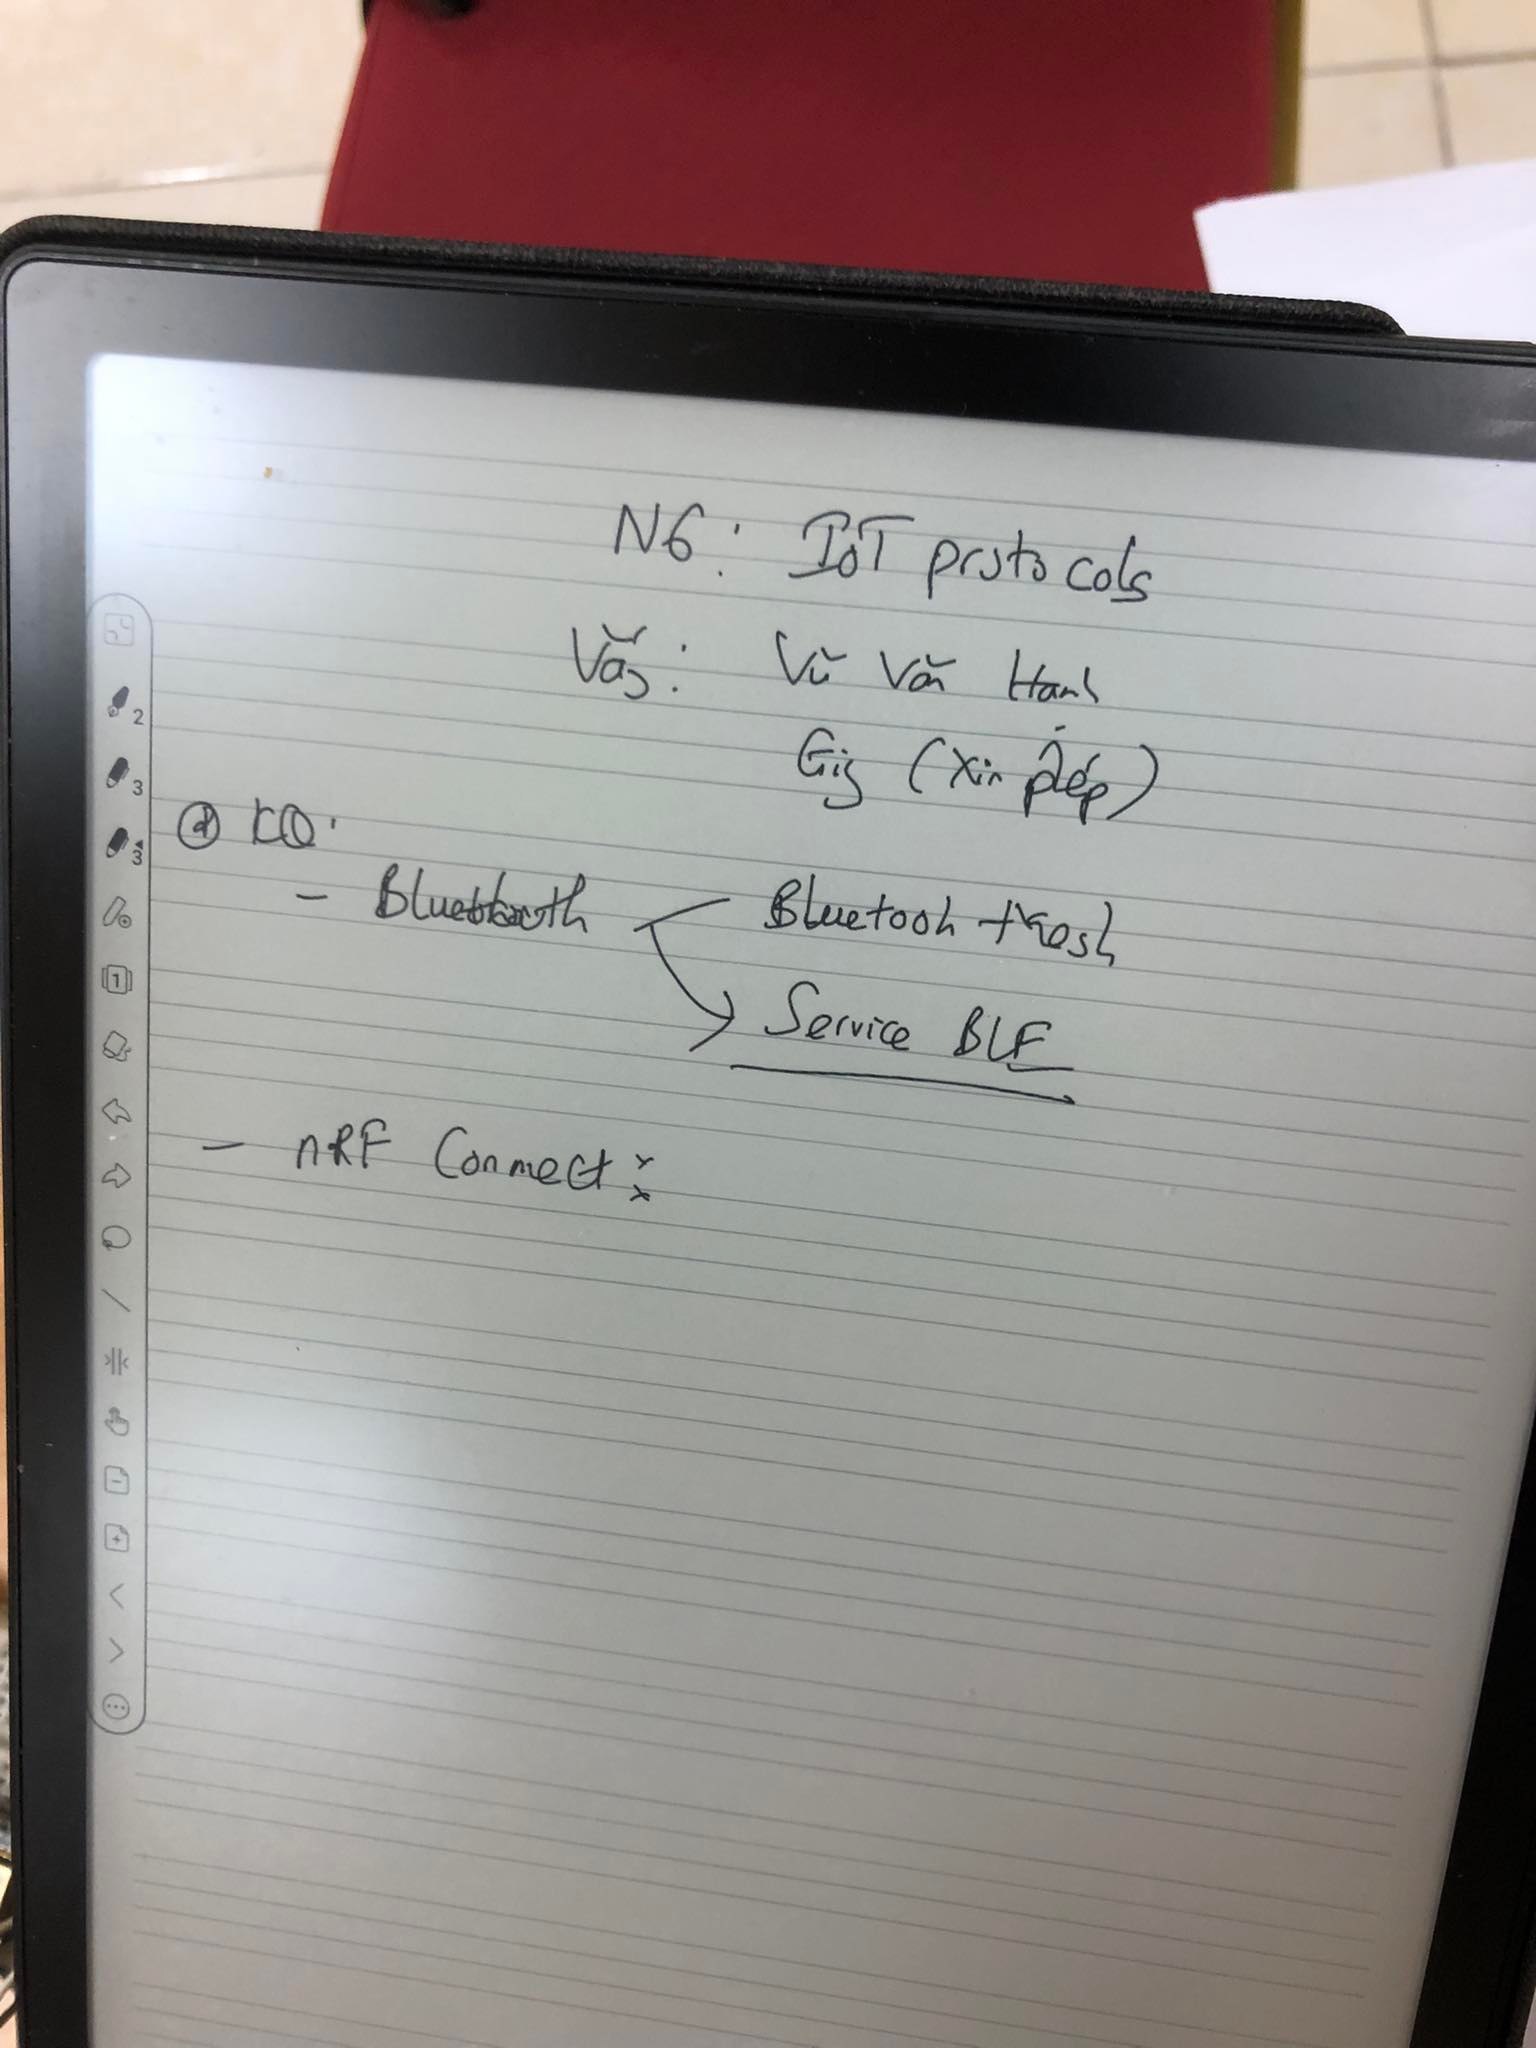 N6: IoT protocols
Vắng: Vũ Văn Hanh
(Xin phép)
KQ:
- Bluetooth Bluetooh Mesh
Service BLE
- nRF Connect: